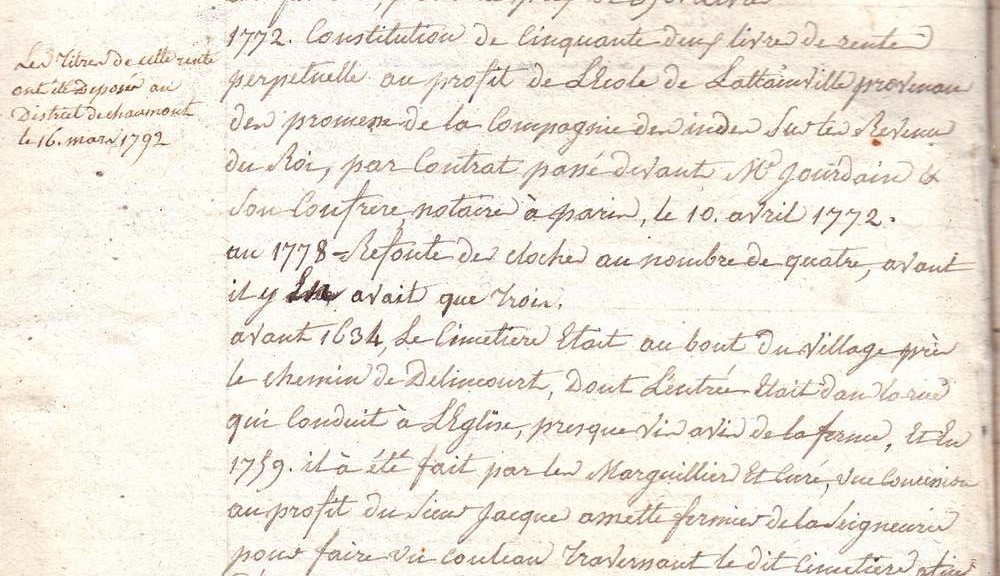 Les Titres de cette rente
ont été Déposés au
District de chaumont
le 16. mars 1792
1772. Constitution de Cinquante deux livre de rente
perpetuelle au profit de L'Ecole de Lattainville provenan
des promesse de la Compagnie des indes Sur les Revenu
du Roi, par Contrat passé devant Me Jourdain &
Son Confrère notaire à paris, le 10. avril 1772.
an 1778 Refonte des cloches au nombre de quatre, avant
il y En avait que trois.
avant 1634, Le Cimetiere Etait au bout du village près
le chemin de Delincourt, Dont L'entrée Etait dans la rue
qui Conduit à L'Eglise, presque vis avis de la ferme, Et En
1759. il à été fait par les Marguillier Et Curé, une Concession
au profit du Sieur Jacque amette fermier de la Seigneurie
pour faire un couteau Traversant le dit Cimetière afin